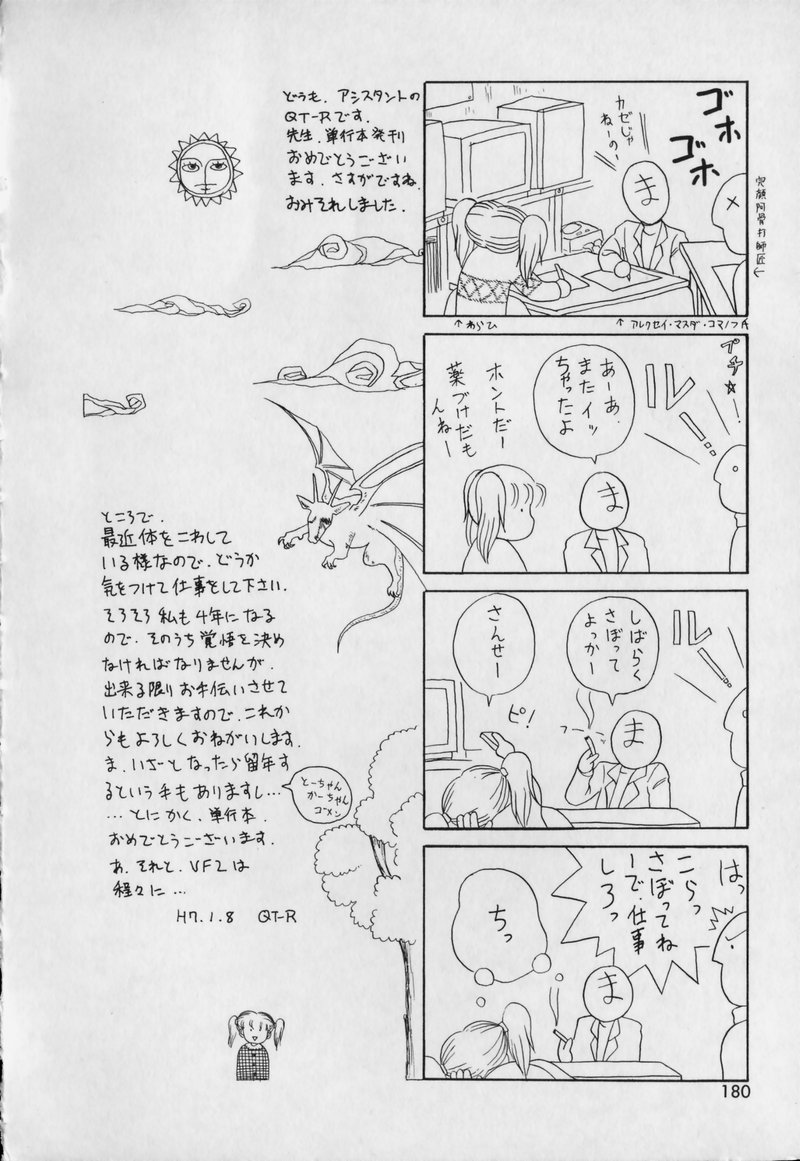 どうも、アシスタントの
QT-Rです。
先生、単行本発刊
おめでとうござい
ます。さすがですね、
おみそれしました。
ゴホ
ゴホ
カゼじゃ
ねーの。
ま
↑わらひ
↑アレクセイ・マスダ・コマノフ氏
プチ☆
ルルー…
あーあ、
またイッ
ちゃったよ
ホントだー
薬づけだも
んねー
ま
ルルー…
しばらく
さぼって
よっかー
さんせー
ピ!
ま
はっ
こらっ
さぼってね
ーで、仕事
しろっ
ちっ
ま
ところで、
最近体をこわして
いる様なので、どうか
気をつけて仕事をして下さい。
そろそろ私も4年になる
ので、そのうち覚悟を決め
なければなりませんが、
出来る限りお手伝いさせて
いただきますので、これか
らもよろしくおねがいします。
ま、いざとなったら留年す
るという手もありますし…
…とにかく、単行本
おめでとうございます。
あ、それと、VF2は
程々に…
H7.1.8 QT-R
とーちゃん
かーちゃん
ゴメン
180